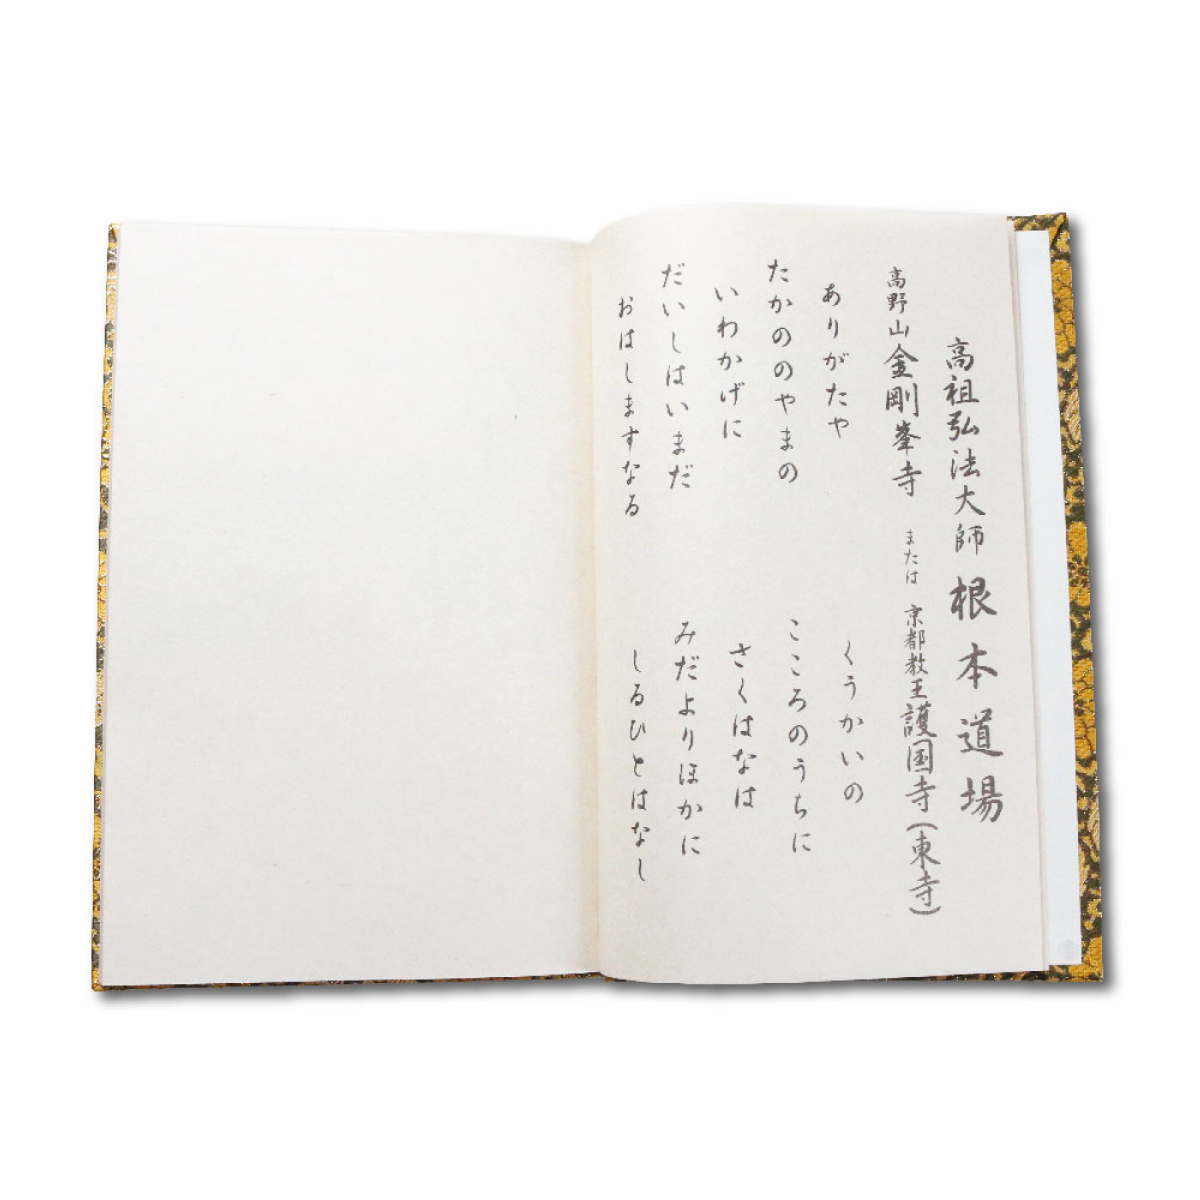 高祖弘法大師 根本道場
高野山金剛峯寺 または 京都教王護国寺(東寺)
ありがたや
たかののやまの
いわかげに
だいしはいまだ
おはしますなる
くうかいの
こころのうちに
さくはなは
みだよりほかに
しるひとはなし